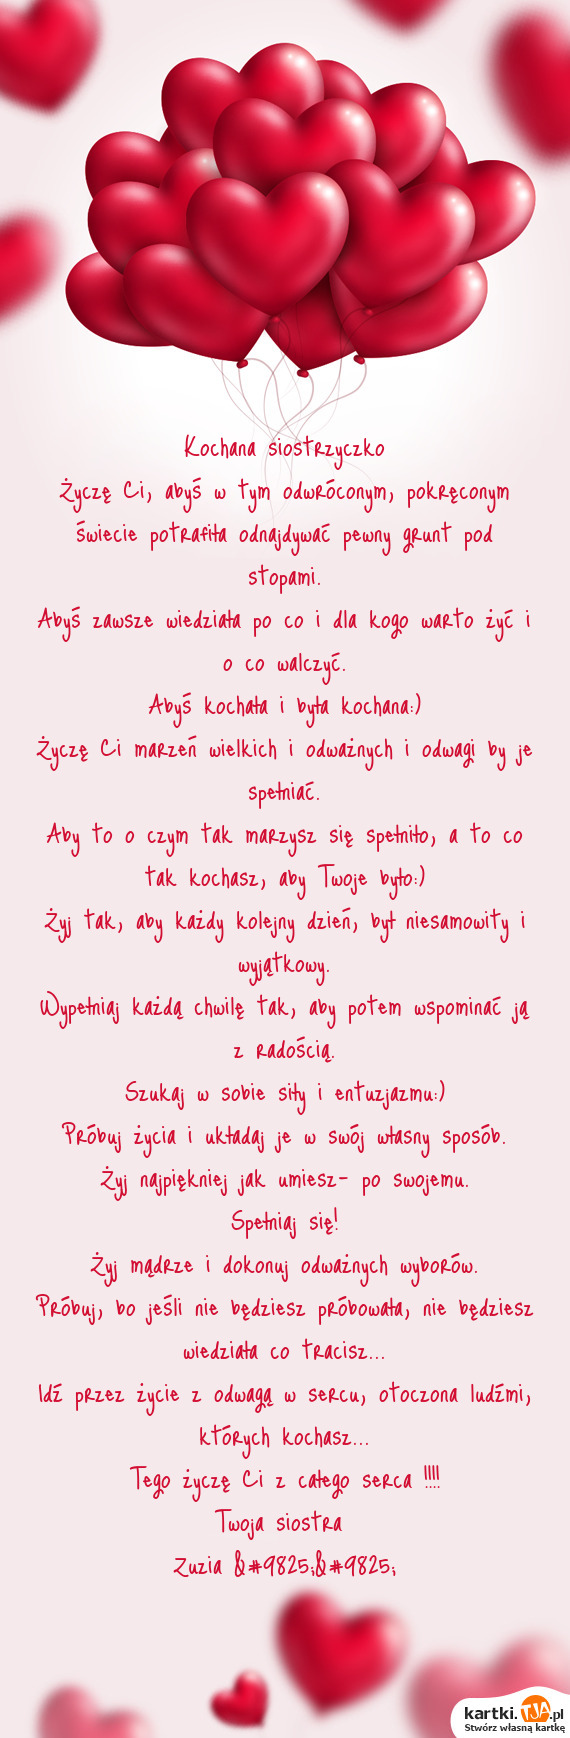 Kochana siostrzyczko
Życzę Ci, abyś w tym odwróconym, pokręconym
świecie potrafiła odnajdywać pewny grunt pod
stopami.
Abyś zawsze wiedziała po co i dla kogo warto żyć i
o co walczyć.
Abyś kochała i była kochana:)
Życzę Ci marzeń wielkich i odważnych i odwagi by je
spełniać.
Aby to o czym tak marzysz się spełniło, a to co
tak kochasz, aby Twoje było:)
Żyj tak, aby każdy kolejny dzień, był niesamowity i
wyjątkowy.
Wypełniaj każdą chwilę tak, aby potem wspominać ją
z radością.
Szukaj w sobie siły i entuzjazmu:)
Próbuj życia i układaj je w swój własny sposób.
Żyj najpiękniej jak umiesz- po swojemu.
Spełniaj się!
Żyj mądrze i dokonuj odważnych wyborów.
Próbuj, bo jeśli nie będziesz próbowała, nie będziesz
wiedziała co tracisz...
Idź przez życie z odwagą w sercu, otoczona ludźmi,
których kochasz...
Tego życzę Ci z całego serca !!!!
Twoja siostra
Zuzia &#9825;&#9825;
kartki.TJA.pl
Stwórz własną kartkę